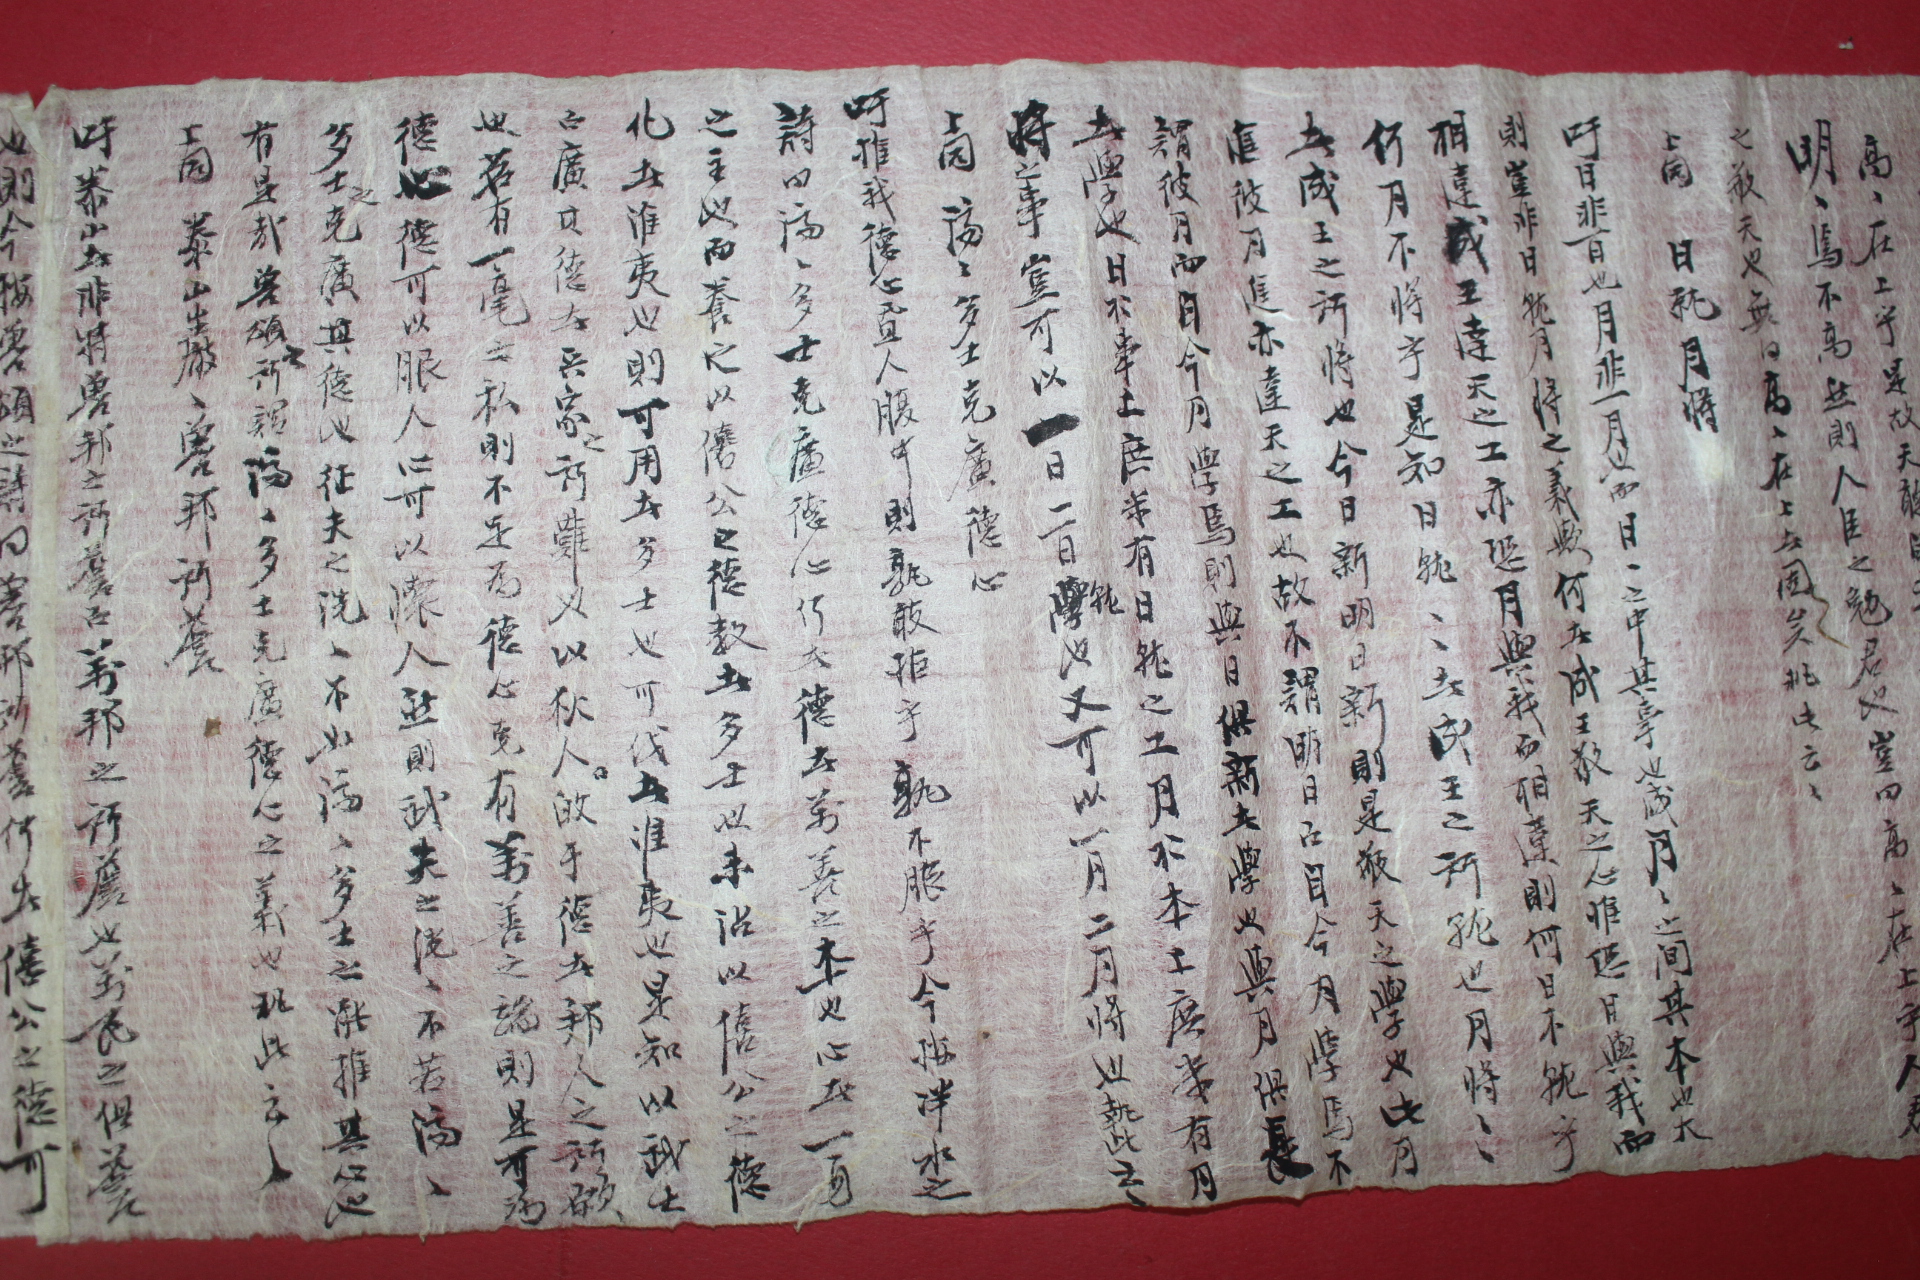 高〻在上乎是故天聽
明〻焉不高然則人臣之勉君也豈曰高〻在上乎人君
之敬天也無曰高〻在上者固矣執此云〻
上同 日就月將
吁日非一日也月非一月也而日〻之中其享也成月〻之間其本也大
則豈非日就月將之義歟何者成王敬天之心惟恐日與我而
相違成王違天之工亦恐月與我而相違則何日不就乎
何月不將乎是知日就〻〻者成王之所就也月將〻〻
者成王之所將也今日新明日新則是敬天之學也此月
進彼月進亦違天之工也故不謂明日而自今月學焉不
謂彼月而自今月學焉則與日俱新者學也與月俱長
者學也日於本上庶幾有日就之工月於本上庶幾有月
將之事豈可以一日二日就學也又可以一月二月將也執此云〻
上同 濟〻多士克廣德心
吁推我德心置人腹中則孰敢拒乎孰不服乎今按泮水之
詩曰濟〻多士克廣德心何者德者萬善之本也心者一身
之主也而養之以僖公之德教者多士也未沾以僖公之德
化者淮夷也則可用者多士也可伐者淮夷也是知以我士
而廣其德者兵家之所難也以狄人而啟于德者邦人之所欲
也若有一毫之私則不足爲德心克有萬善之端則是可爲
德心德可以服人心可以懷人然則武夫之洸〻不若濟〻
多士之克廣其德也征夫之洸〻不如濟〻多士之能推其心也
有是哉魯頌之所謂濟〻多士克廣德心之義也執此云〻
上同 泰山巖〻魯邦所詹
吁泰山者非特魯邦之所詹而萬邦之所詹也萬民之俱詹
也則今按魯頌之詩曰魯邦所詹何者僖公之德可